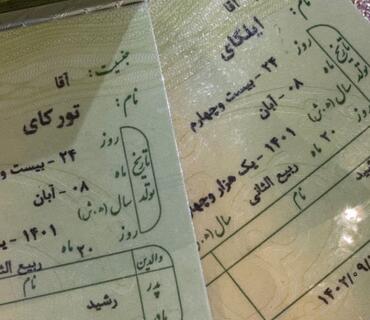 جنسیت: آقا
نام: تورکای
تاریخ تولد
روز ۲۴ - بیست و
ماه ۰۸ - آبان
سال (ه.ش) ۱۴۰۱ -
روز ۲۰ ماه ربیع
والدین
نام
پدر رشید
آقا
نام: ایلگای
تاریخ تولد
روز ۲۴ - بیست و چهارم
ماه ۰۸ - آبان
سال (ه.ش) ۱۴۰۱ - یک هزار و چهار
روز ۲۰ ماه ربیع الثانی
سال (ه.
نام
رشید
۱۴۰۲/۰۹/